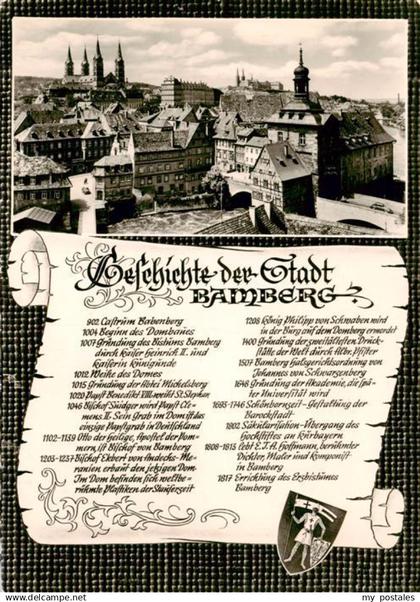 Geschichte-der-Stadt
BAMBERG
902 Castrum Babenberg
1004 Beginn des Dombaues
1007 Gründung des Bistums Bamberg
durch Kaiser Heinrich II. und
Kaiserin Kunigunde
1012 Weihe des Domes
1015 Gründung der Abtei Michelsberg
1020 Papst Benedikt VIII. weiht St. Stephan
1046 Bischof Suidger wird Papst Cle-
mens II. Sein Grab im Dom ist das
einzige Papstgrab in Deutschland
1102-1139 Otto der Heilige, Apostel der Pom-
mern ist Bischof von Bamberg
1203-1237 Bischof Ekbert von Andechs-Me-
ranien erbaut den jetzigen Dom
Im Dom befinden sich weltbe-
rühmte Plastiken der Stauferzeit
1208 König Philipp von Schwaben wird
in der Burg auf dem Domberg ermordet
1400 Gründung der zweitältesten Druck-
stätte der Welt durch Albr. Pfister
1507 Bamberg Halsgerichtsordnung von
Johannes von Schwarzenberg
1648 Gründung der Akademie, die spä-
ter Universität wird
1693-1746 Schönbornzeit-Gestaltung der
Barockstadt
1802 Säkularisation-Übergang des
Hochstiftes an Kurbayern
1808-1813 lebt E.T.A. Hoffmann, berühmter
Dichter, Maler und Komponist
in Bamberg
1817 Errichtung des Erzbistums
Bamberg
© www.ansichtskarten-center.de
my postales